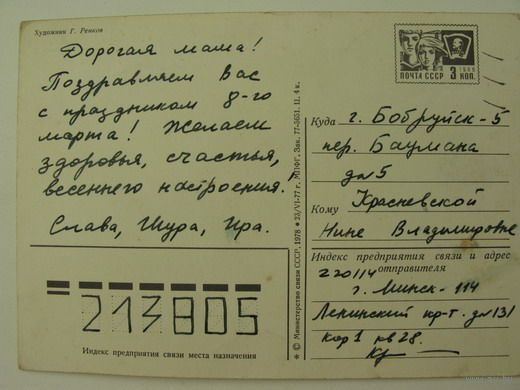 Художник Г. Ренков
Дорогая мама!
Поздравляем Вас
с праздником 8-го
марта! Желаем
здоровья, счастья,
весеннего настроения!
Слава, Шура, Ира.
213805
Индекс предприятия связи места назначения
© Министерство связи СССР. 1978 • 23/VI-77 г. МПФГ. Зак. 77-3651. Ц. 4 к.
1966
ПОЧТА СССР 3 коп
Куда г. Бобруйск-5
пер. Баумана
д№5
Кому Красневской
Нине Владимировне
Индекс предприятия связи и адрес
отправителя
220114
г. Минск-114
Ленинский кр-т. д№131
кор 1 кв 28.